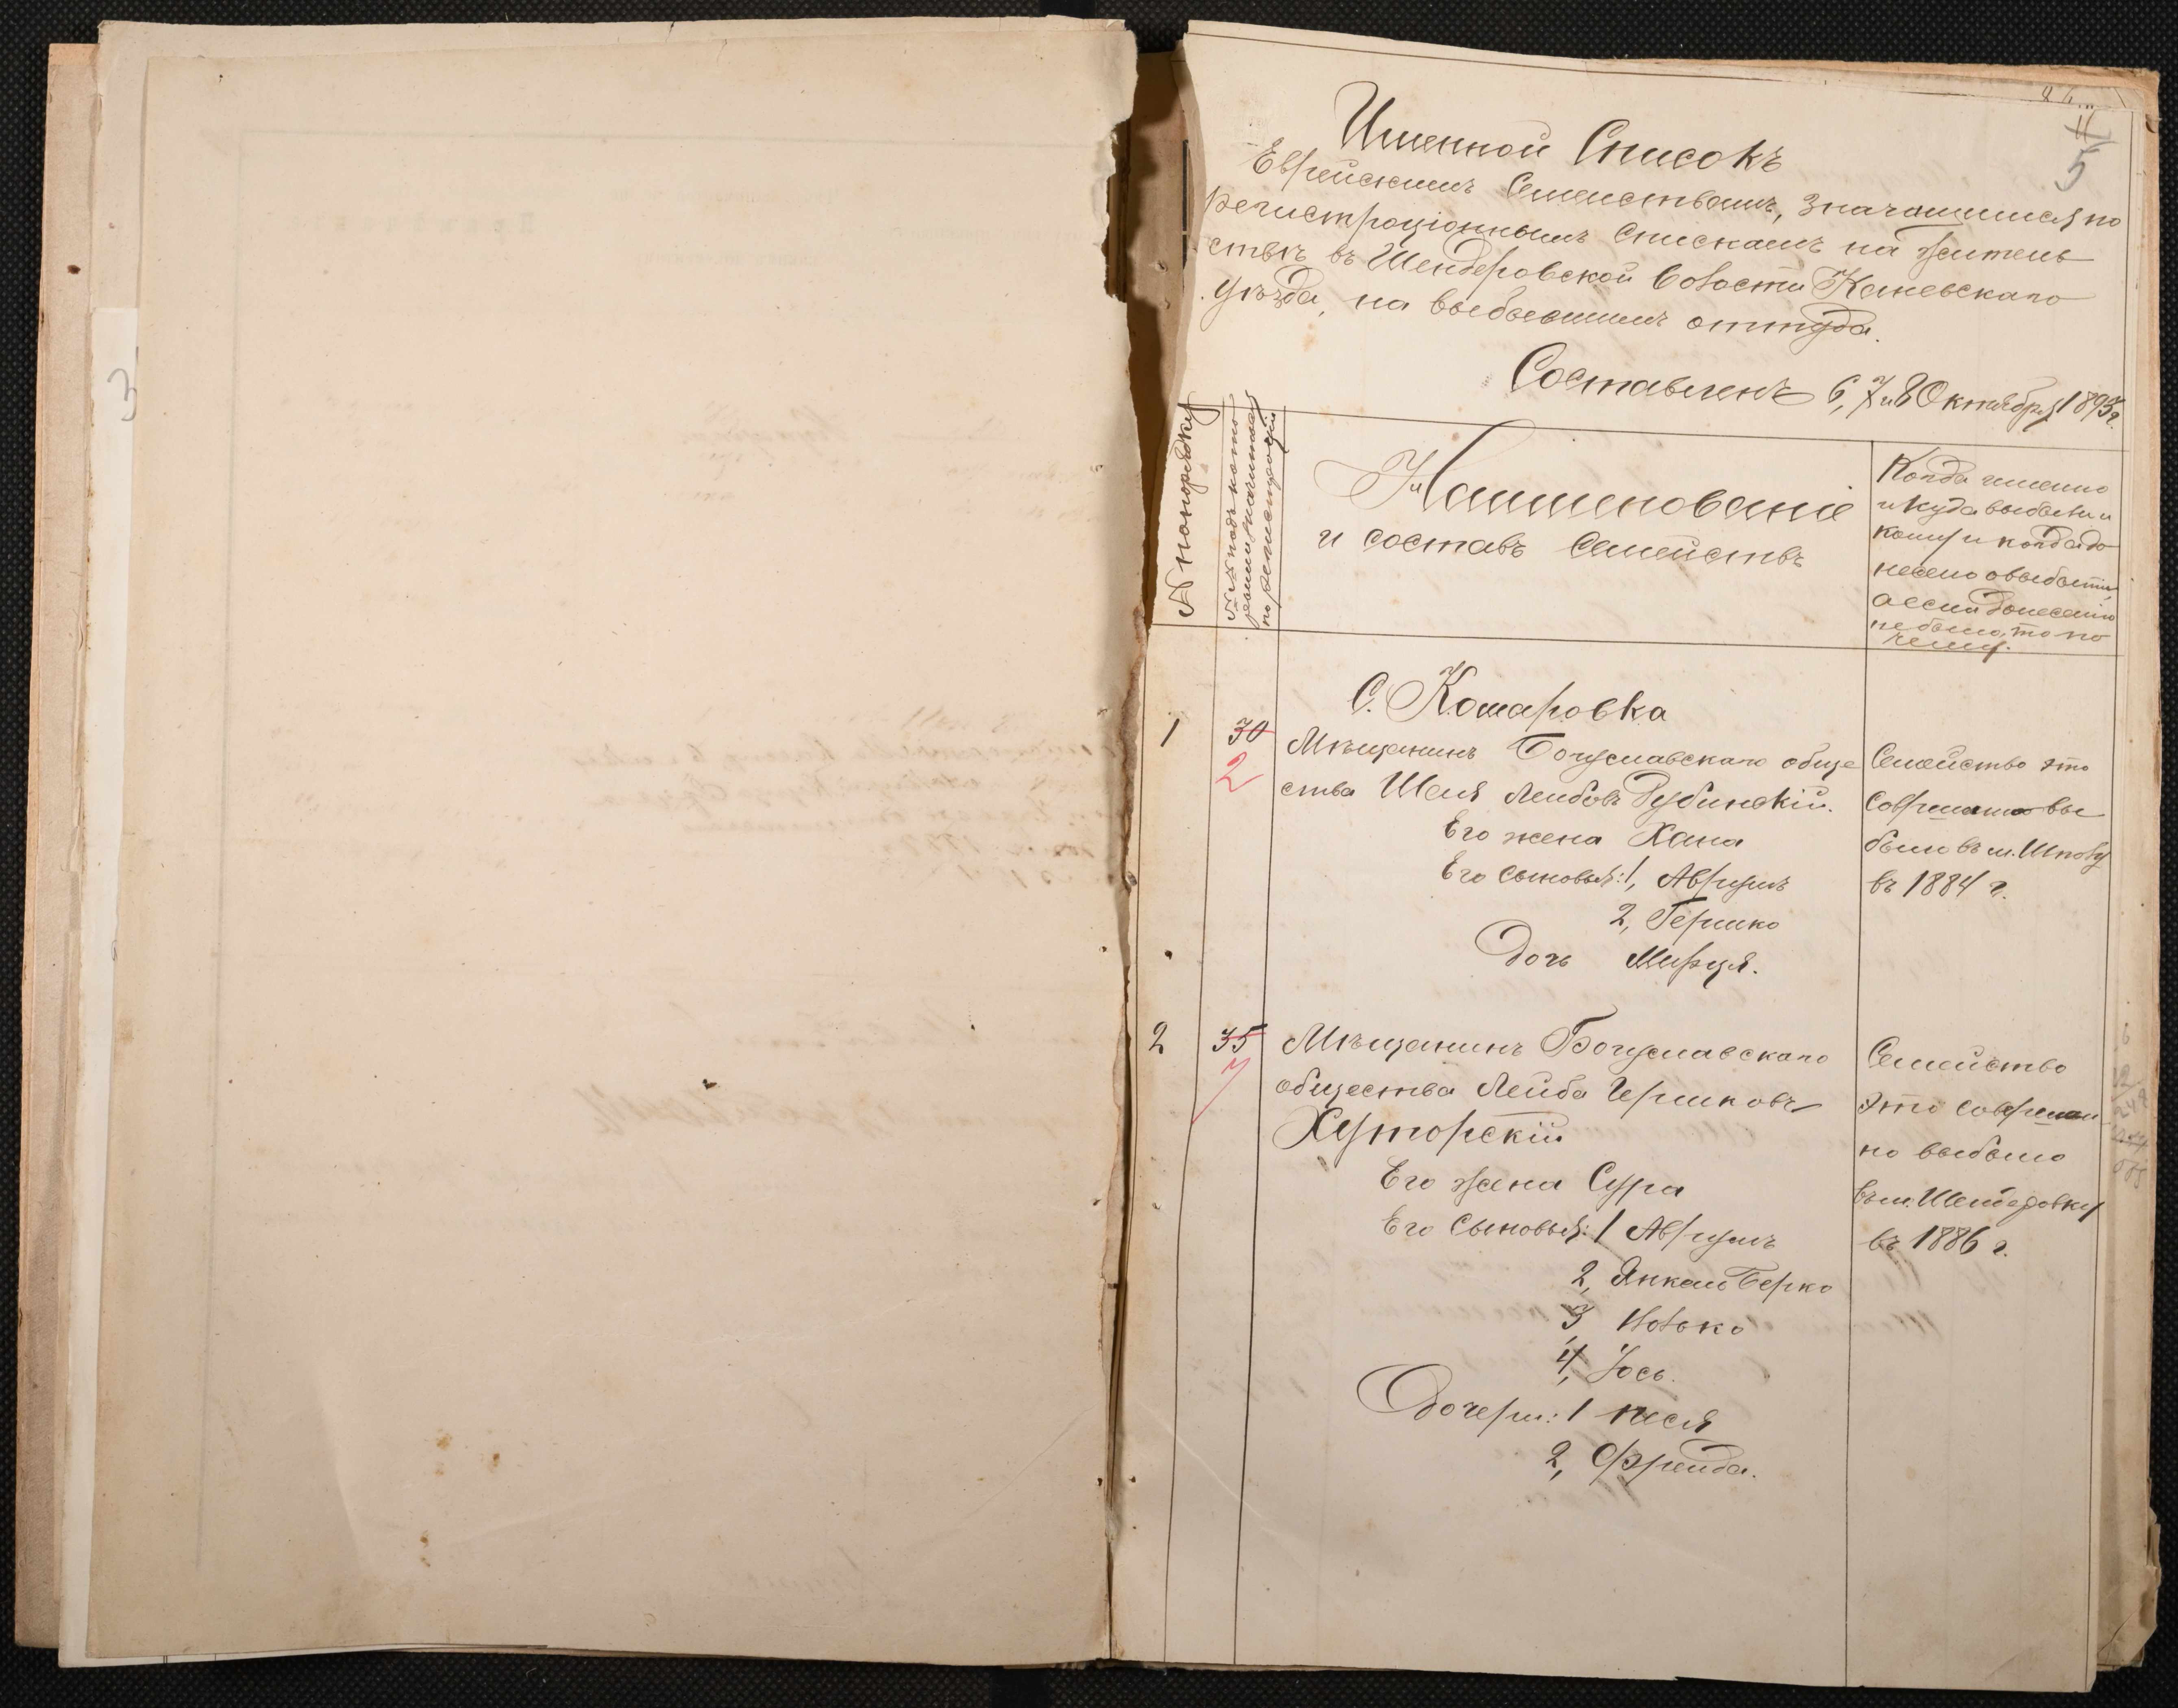 3
5
Именной Списокъ
Еврейскимъ Семействамъ, значащимися по
регистраціоннымъ спискамъ на житель
ствѣ въ Шендеровской волости Каневскаго
уѣзда, на выбывшимъ оттуда.
Составленъ 6, 7 и 8 Октября 1895 г.
№ по порядку
№№ подъ кото
рыми значится
по регистраціи
Наименованіе
и составъ Семействъ
Когда именно
и куда выбыли и
кому и когда до
несено о выбытіи,
а если донесенія
не было, то по
чему.
С. Комаровка
1
30
2
Мѣщанинъ Богуславскаго обще
ства Шая Лейбовъ Рубинскій.
Его жена Хана
Его сыновья: 1, Аврумъ
2, Гершко
Дочь Мирця.
Семейство это
совршено вы
было въ м. Шполу
въ 1884 г.
2
35
7
Мѣщанинъ Богуславскаго
общества Лейба Гершковъ
Хуторскій
Его жена Сура
Его Сыновья: 1 Аврумъ
2, Янкель Берко
3 Иолько
4, Іось.
Дочери: 1 Нися
2, Фрейда.
Семейство
это совршен
но выбыло
въ м. Шендеровку
въ 1886 г.